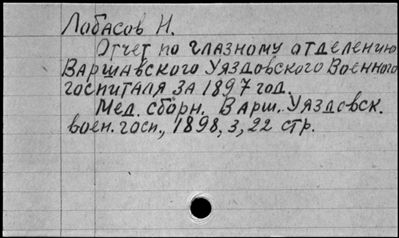 Лабасов Н.
Отчет по глазному отделению
Варшавского Уяздовского Военного
госпиталя за 1897 год.
Мед. сборн. Варш. Уяздовск.
воен. госп., 1898, 3, 22 стр.